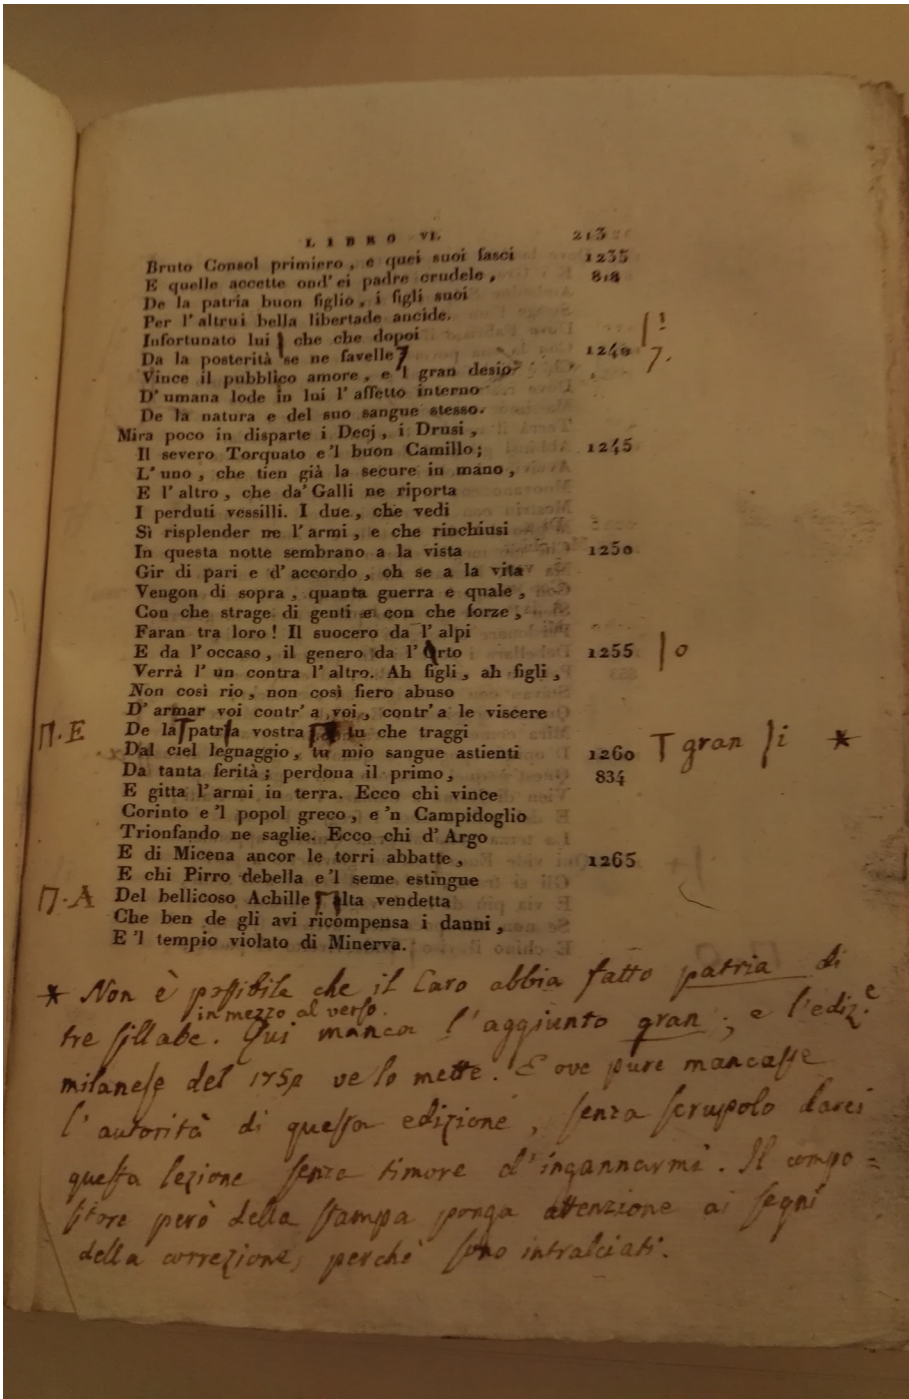 LIBRO VI. 213
Bruto Consol primiero, e quei suoi fasci 1235
E quelle accette ond' ei padre crudele, 818
De la patria buon figlio, i figli suoi
Per l'altrui bella libertade ancide.
Infortunato lui che che dopoi !
Da la posterità se ne favelle 1240
Vince il pubblico amore, e 'l gran desio
D' umana lode in lui l' affetto interno
De la natura e del suo sangue stesso.
Mira poco in disparte i Decj, i Drusi,
Il severo Torquato e 'l buon Camillo; 1245
L' uno, che tien già la secure in mano,
E l' altro, che da' Galli ne riporta
I perduti vessilli. I due, che vedi
Sì risplender ne l' armi, e che rinchiusi
In questa notte sembrano a la vista 1250
Gir di pari e d' accordo, oh se a la vita
Vengon di sopra, quanta guerra e quale,
Con che strage di genti e con che forze,
Faran tra loro! Il suocero da l' alpi
E da l' occaso, il genero da l' Orto 1255 o
Verrà l' un contra l' altro. Ah figli, ah figli,
Non così rio, non così fiero abuso
D' armar voi contr' a voi, contr' a le viscere
Π.E De la patria vostra tu che traggi gran si *
Dal ciel legnaggio, tu mio sangue astienti 1260
Da tanta ferità; perdona il primo, 834
E gitta l' armi in terra. Ecco chi vince
Corinto e 'l popol greco, e 'n Campidoglio
Trionfando ne saglie. Ecco chi d' Argo
E di Micena ancor le torri abbatte, 1265
E chi Pirro debella e 'l seme estingue
Π.A Del bellicoso Achille alta vendetta
Che ben de gli avi ricompensa i danni,
E 'l tempio violato di Minerva.
* Non è possibile che il Caro abbia fatto patria di
tre sillabe. in mezzo al verso. Qui manca l'aggiunto gran; e l'ediz.e
milanese del ve lo mette. E ove pure mancasse
l'autorità di questa edizione, senza scrupolo darei
questa lezione senza timore d'ingannarmi. Il compo=
sitore però della stampa ponga attenzione ai segni
della correzione, perchè sono intralciati.